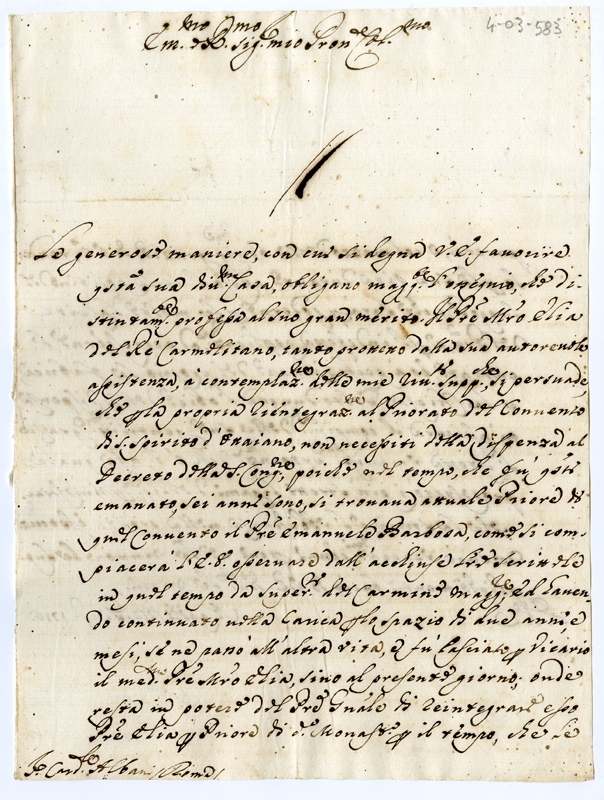 4-03-583
Em.mo e R.mo Sig. mio Pron Col.mo
Le generose maniere, con cui si degna V. E. favorire
q̃sta sua div.ma Casa, obligano magg.te l'ossequio, che di-
stintam.te professa al suo gran merito. Il Prẽ Mrõ Elia
del Rè Carmelitano, tanto protetto dalla sua autorevole
assistenza, à contemplaz.ne delle mie riv.te supp.che, si persuade,
che p la propria reintegraz.ne al Priorato del Convento
di S. Spirito d'Ocaiano, non necessiti della dispenza al
Decreto della S. Cong.ne, poiche nel tempo, che fù q̃sto
emanato, sei anni sono, si trovava attuale Priore di
quel Convento il Prẽ Emanuele Barbosa, come si com-
piacerà l'E. V. osservare dall'acclùse Lrẽ scrittele
in quel tempo da super.ri del Carmine magg.re, ed haven-
do continuato nella Carica p lo spazio di due anni, e
mesi, se ne passò all'altra vita, e fù lasciato p Vicario
il med.mo Prẽ Mrõ Elia, sino al presente giorno; onde
resta in potere del Prẽ Gnãle di reintegrare esso
Prẽ Elia p Priore di d.o Monast.o p il tempo, che se
S.r Card.le Albani Roma